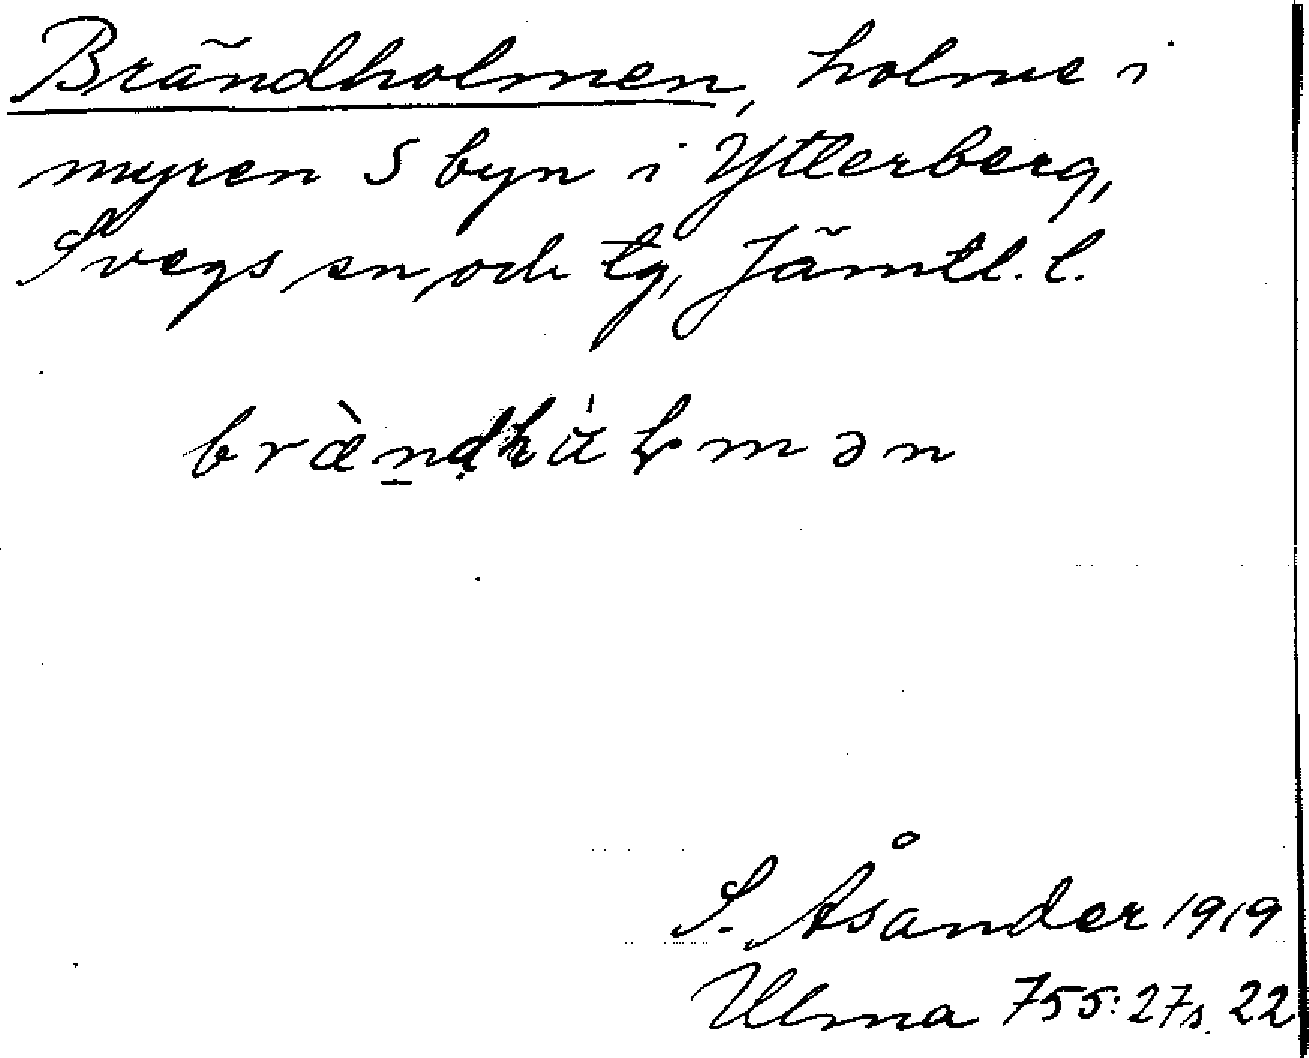 Brändholmen, holme i
myren S byn i Ytterberg,
Svegs sn och tg, Jämtl. l.
bræ̀ndhàɫmən
S. Åsander 1919
Ulma 755:27 s. 22